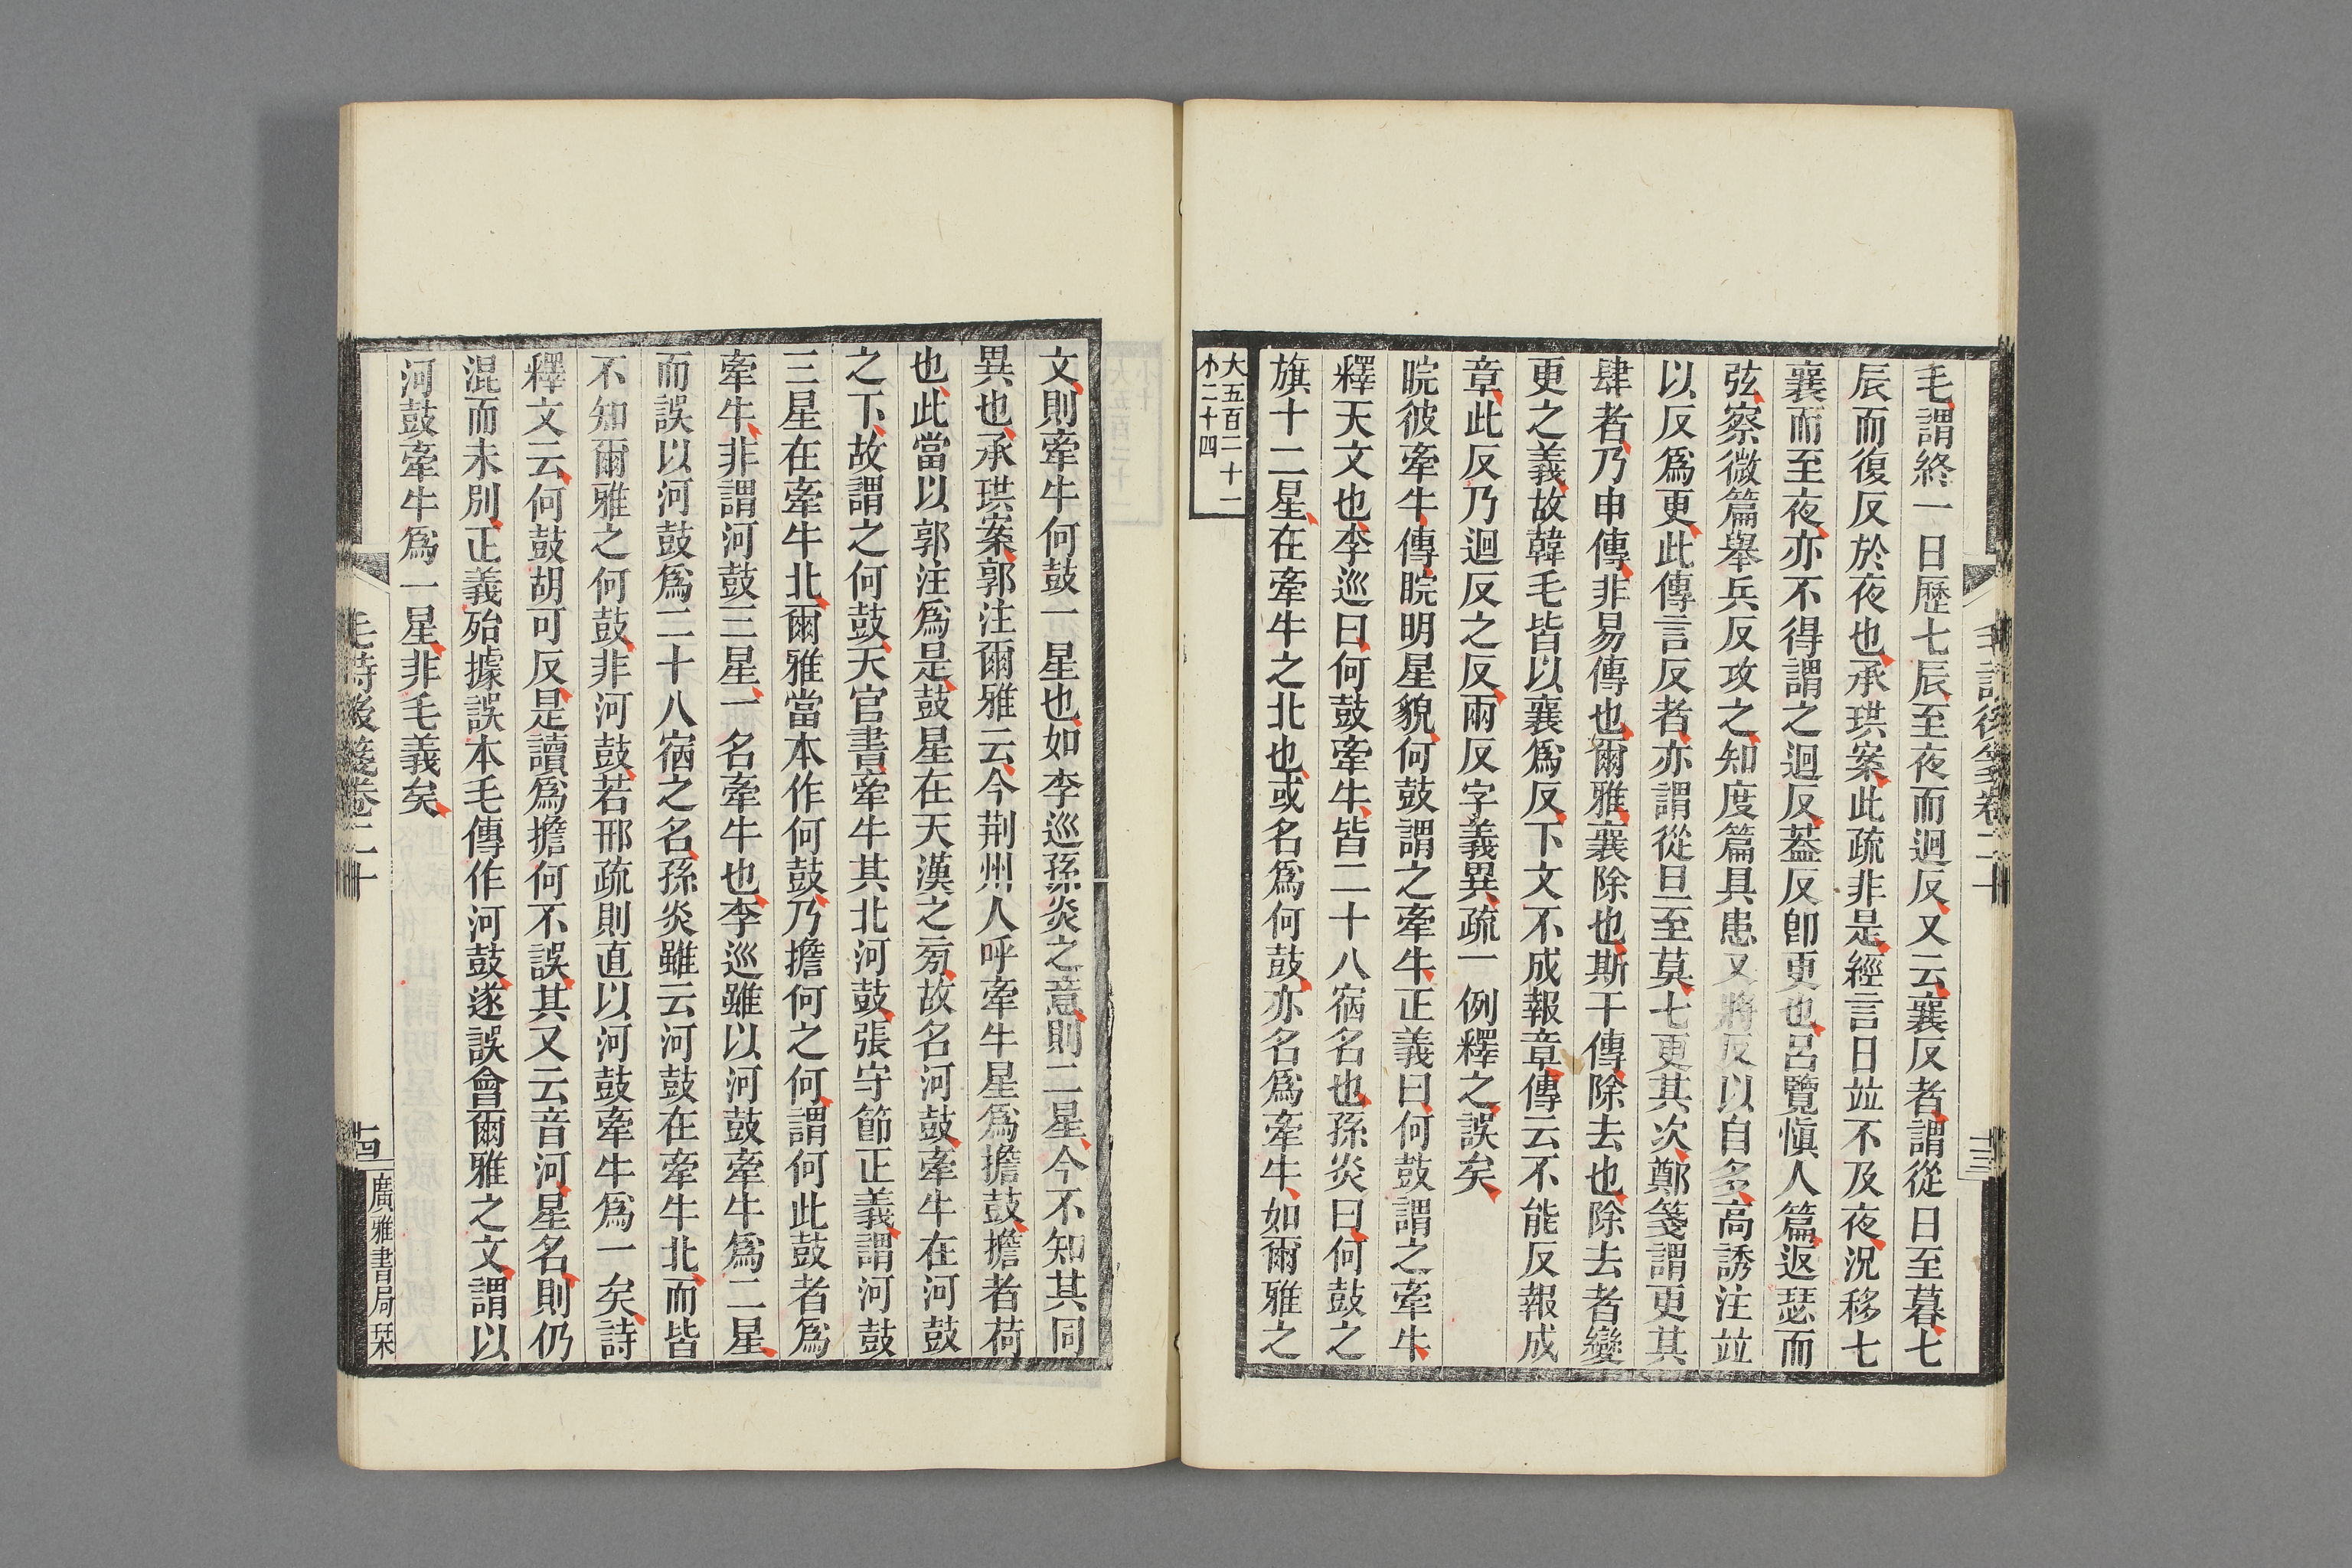 毛詩後箋卷二十
十三
毛謂終一日歷七辰至夜而迴反又云襄反者謂從日至暮七
辰而復反於夜也承珙案此疏非是經言日竝不及夜況移七
襄而至夜亦不得謂之迴反葢反卽更也呂覽愼人篇返瑟而
弦察微篇舉兵反攻之知度篇具患又將反以自多高誘注竝
以反爲更此傳言反者亦謂從旦至莫七更其次鄭箋謂更其
肆者乃申傳非易傳也爾雅襄除也斯干傳除去也除去者變
更之義故韓毛皆以襄爲反下文不成報章傳云不能反報成
章此反乃迴反之反兩反字義異疏一例釋之誤矣
睆彼牽牛傳睆明星貌何鼓謂之牽牛正義曰何鼓謂之牽牛
釋天文也李巡曰何鼓牽牛皆二十八宿名也孫炎曰何鼓之
旗十二星在牽牛之北也或名爲何鼓亦名爲牽牛如爾雅之
大五百二十一
小二十四
文則牽牛何鼓一星也如李巡孫炎之意則二星今不知其同
異也承珙案郭注爾雅云今荆州人呼牽牛星爲擔鼓擔者荷
也此當以郭注爲是鼓星在天漢之旁故名河鼓牽牛在河鼓
之下故謂之何鼓天官書牽牛其北河鼓張守節正義謂河鼓
三星在牽牛北爾雅當本作何鼓乃擔何之何謂何此鼓者爲
牽牛非謂河鼓三星一名牽牛也李巡雖以河鼓牽牛爲二星
而誤以河鼓爲二十八宿之名孫炎雖云河鼓在牽牛北而皆
不知爾雅之何鼓非河鼓若邢疏則直以河鼓牽牛爲一矣詩
釋文云何鼓胡可反是讀爲擔何不誤其又云音河星名則仍
混而未別正義殆據誤本毛傳作河鼓遂誤會爾雅之文謂以
河鼓牽牛爲一星非毛義矣
毛詩後箋卷二十
十四
廣雅書局栞